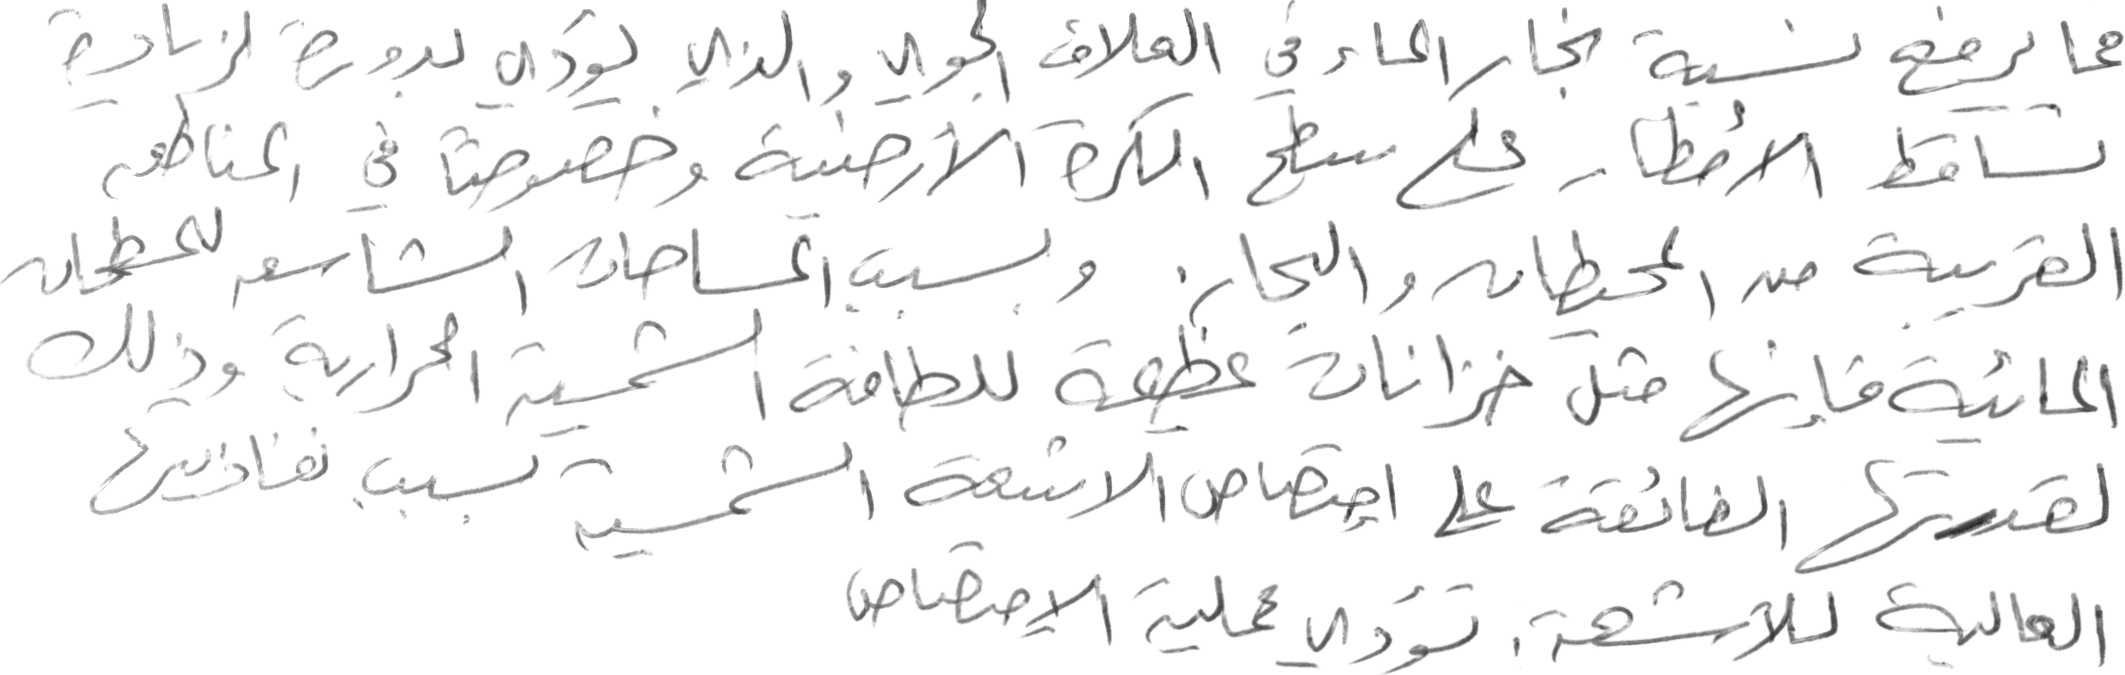 مما يرفع نسبة بخار الماء في الغلاف الجوي والذي يؤدي بدوره لزيادة
تساقط الأمطار على سطح الكرة الأرضية وخصوصاً في المناطق
القريبة من المحيطات والبحار. وبسبب المساحات الشاسعه للمحيطات
المائية فإنها مثل خزانات عظيمة للطاقة الشمسية الحرارية وذلك
لقدرتها الفائقة على امتصاص الاشعة الشمسية بسبب نفاذيتها
العالية للأشعة. تؤدي عملية الإمتصاص